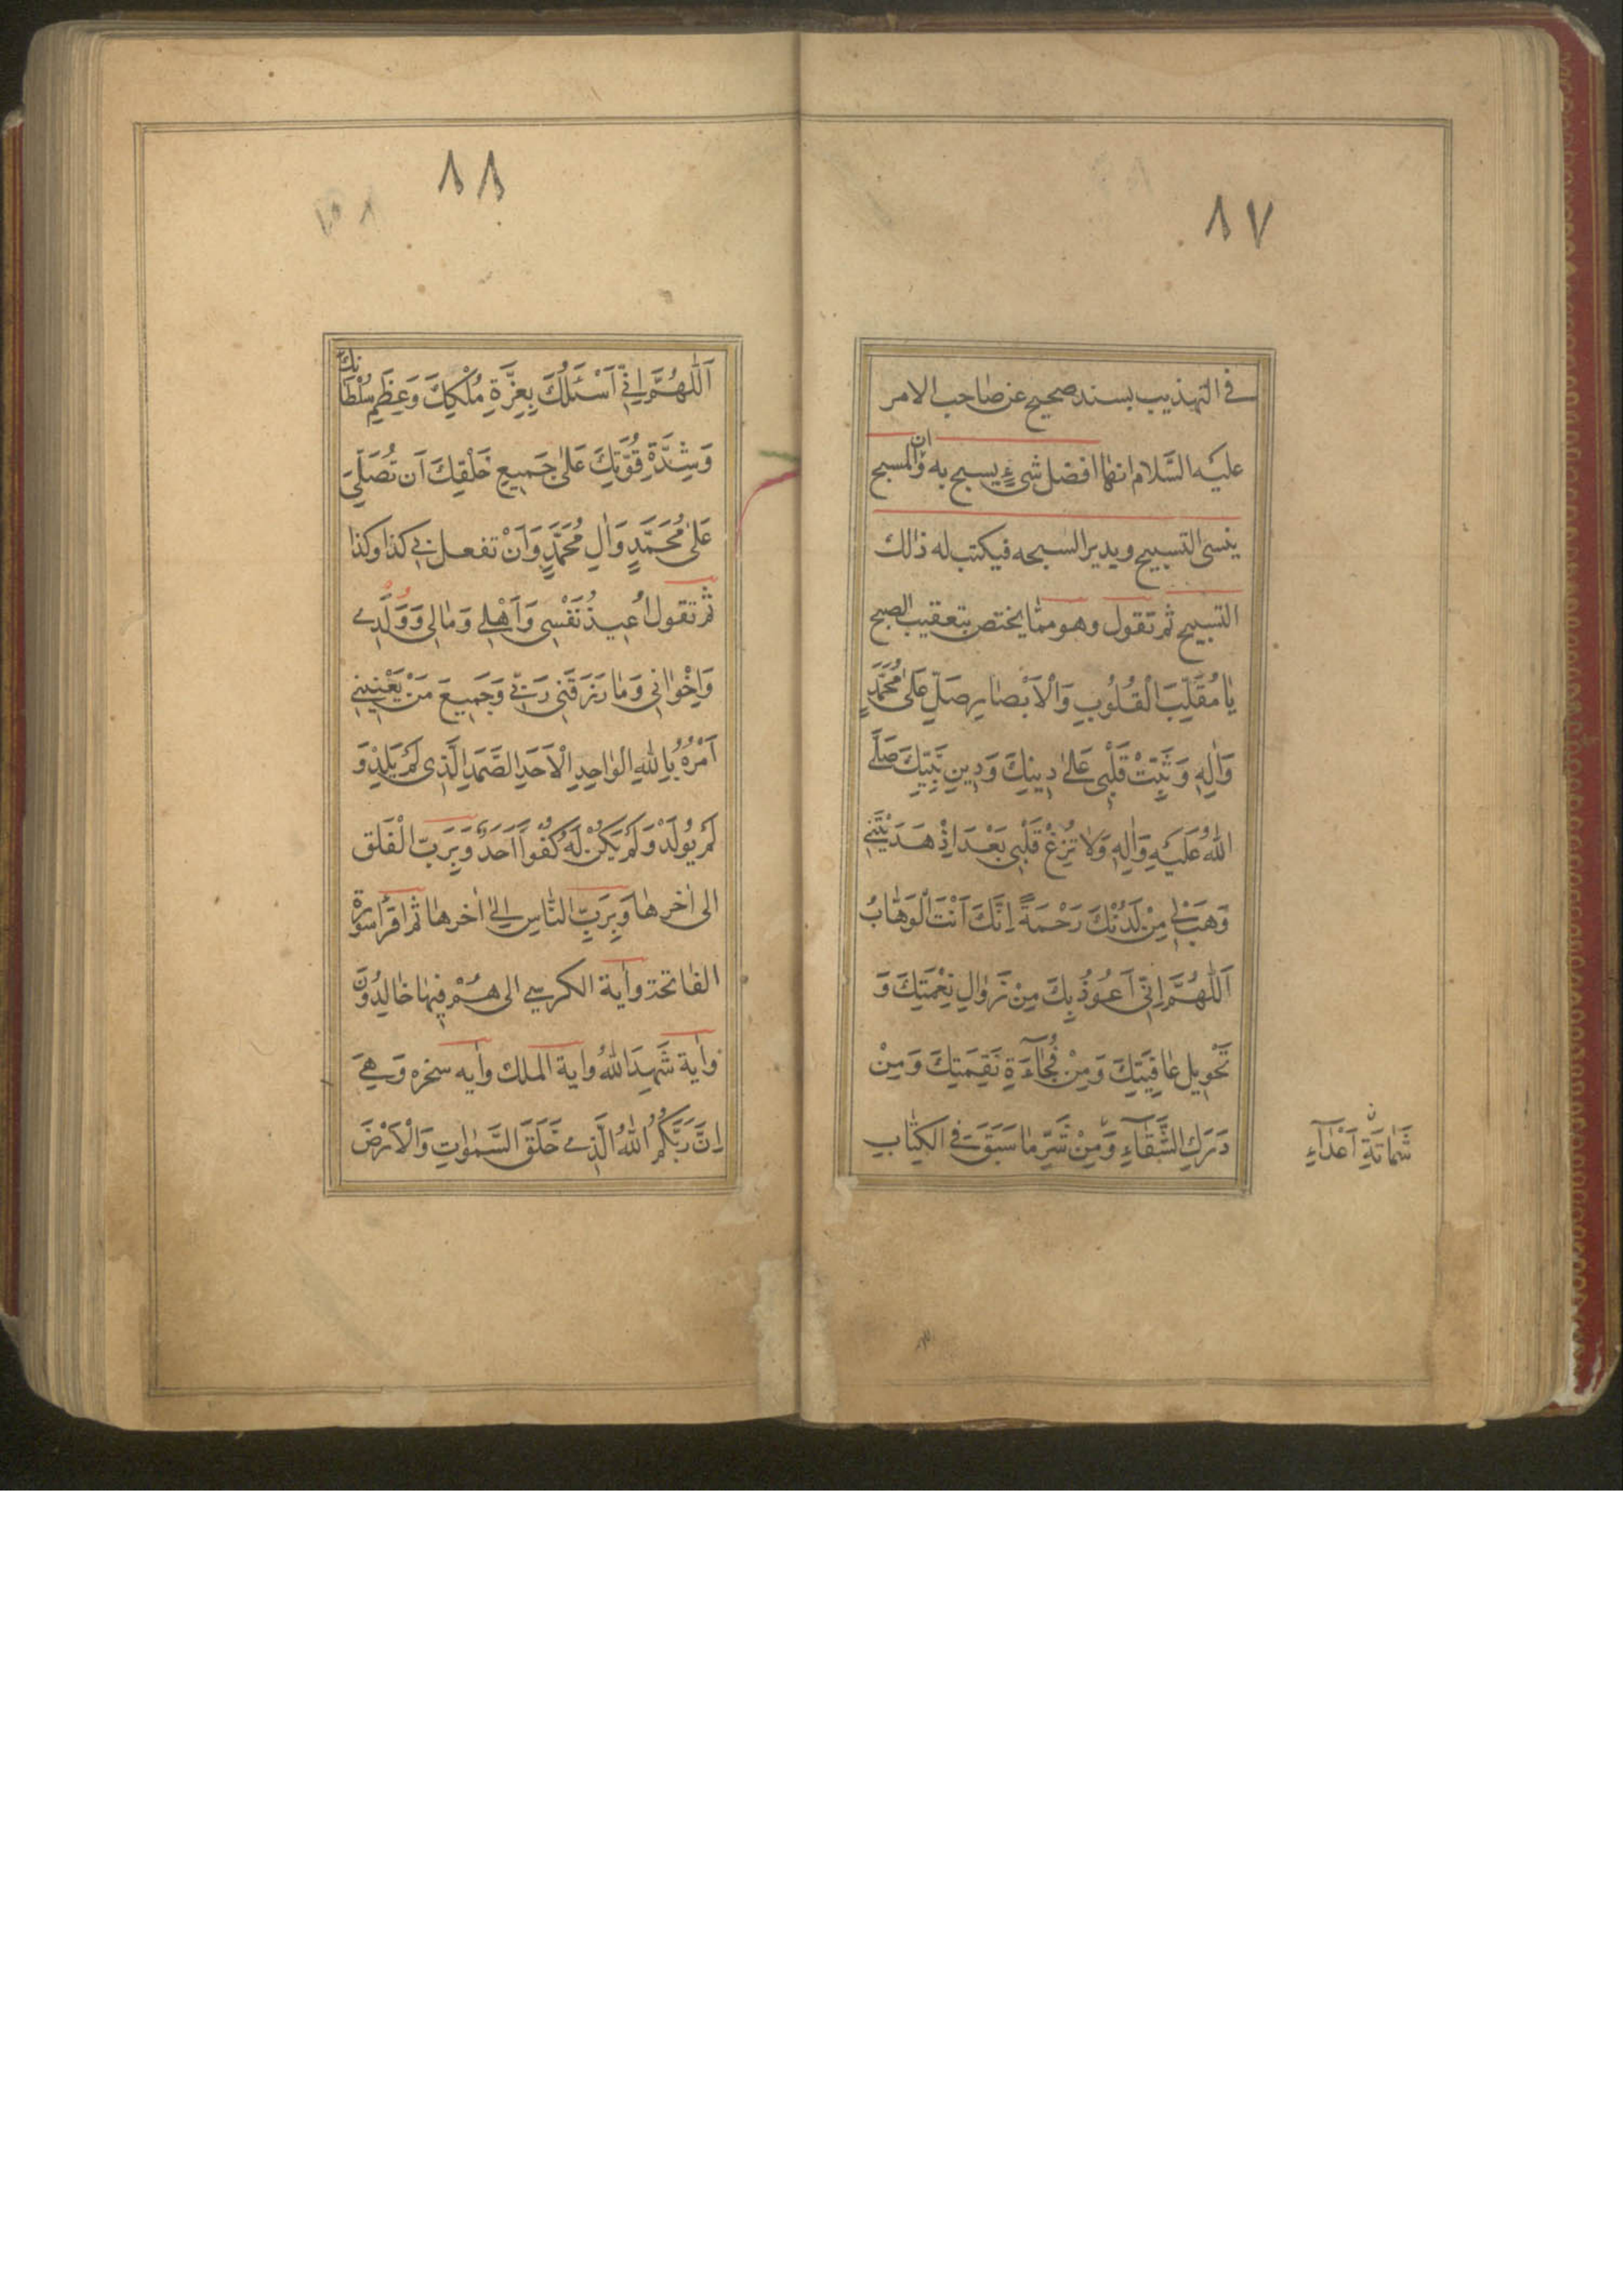 ٨٧
فى التهذيب بسند صحيح عن صاحب الامر
عليه السّلام انها افضل شىءٍ يسبح به وان المسبح
ينسى التسبيح ويدير السبحه فيكتب له ذالك
التسبيح ثم تقول وهو ممّا يختص بتعقيب الصبح
يٰا مُقَلِّبَ الْقُلُوبِ وَالْاَبْصٰارِ صَلِّ عَلىٰ مُحَمَّدٍ
وَاٰلِهِ وَثَبِّتْ قَلْبِى عَلىٰ دِينِكَ وَدِينِ نَبِيِّكَ صَلَّى
اللّٰهُ عَلَيْهِ وَاٰلِهِ وَلٰا تُزِغْ قَلْبِى بَعْدَ اِذْ هَدَيْتَنِى
وَهَبْ لِى مِنْ لَدُنْكَ رَحْمَةً اِنَّكَ اَنْتَ الْوَهّٰابُ
اَللّٰهُمَّ اِنّى اَعُوذُ بِكَ مِنْ زَوٰالِ نِعْمَتِكَ وَ
تَحْوِيلِ عٰافِيَتِكَ وَمِنْ فُجٰآءَةِ نَقِمَتِكَ وَمِنْ
دَرَكِ الشَّقٰآءِ وَمِنْ شَرِّ مٰا سَبَقَ فِى الكِتٰابِ
شَمٰاتَةِ اَعْدٰآءِ
٨٨
اَللّٰهُمَّ اِنّى اَسْئَلُكَ بِعِزَّةِ مُلْكِكَ وَعِظَمِ سُلْطٰانِكَ
وَشِدَّةِ قُوَّتِكَ عَلىٰ جَمِيعِ خَلْقِكَ اَن تُصَلِّىَ
عَلىٰ مُحَمَّدٍ وَاٰلِ مُحَمَّدٍ وَاَنْ تفعل بى كذا وكذا
ثم تقول اُعِيذُ نَفْسِى وَاَهْلِى وَمٰالِى وَوَلَدِى
وَاِخْوٰانِى وَمٰا رَزَقَنِى رَبِّى وَجَمِيعَ مَنْ يَعْنِينِى
اَمْرُهُ بِاللّٰهِ الْوٰاحِدِ الْاَحَدِ الصَّمَدِ الَّذِى لَمْ يَلِدْ وَ
لَمْ يُولَدْ وَلَمْ يَكُنْ لَهُ كُفُواً اَحَدٌ وَبِرَبِّ الْفَلَقِ
الى اٰخرها وَبِرَبِّ النّٰاسِ الىٰ اٰخرهٰا ثم اقرأ سورة
الفٰاتحة واٰية الكرسى الى هُمْ فِيهٰا خٰالِدُونَ
واٰية شَهِدَ اللّٰهُ واٰية الملك واٰيه سخره وَهِىَ
اِنَّ رَبَّكُمُ اللّٰهُ الَّذِى خَلَقَ السَّمٰوٰاتِ وَالْاَرْضَ